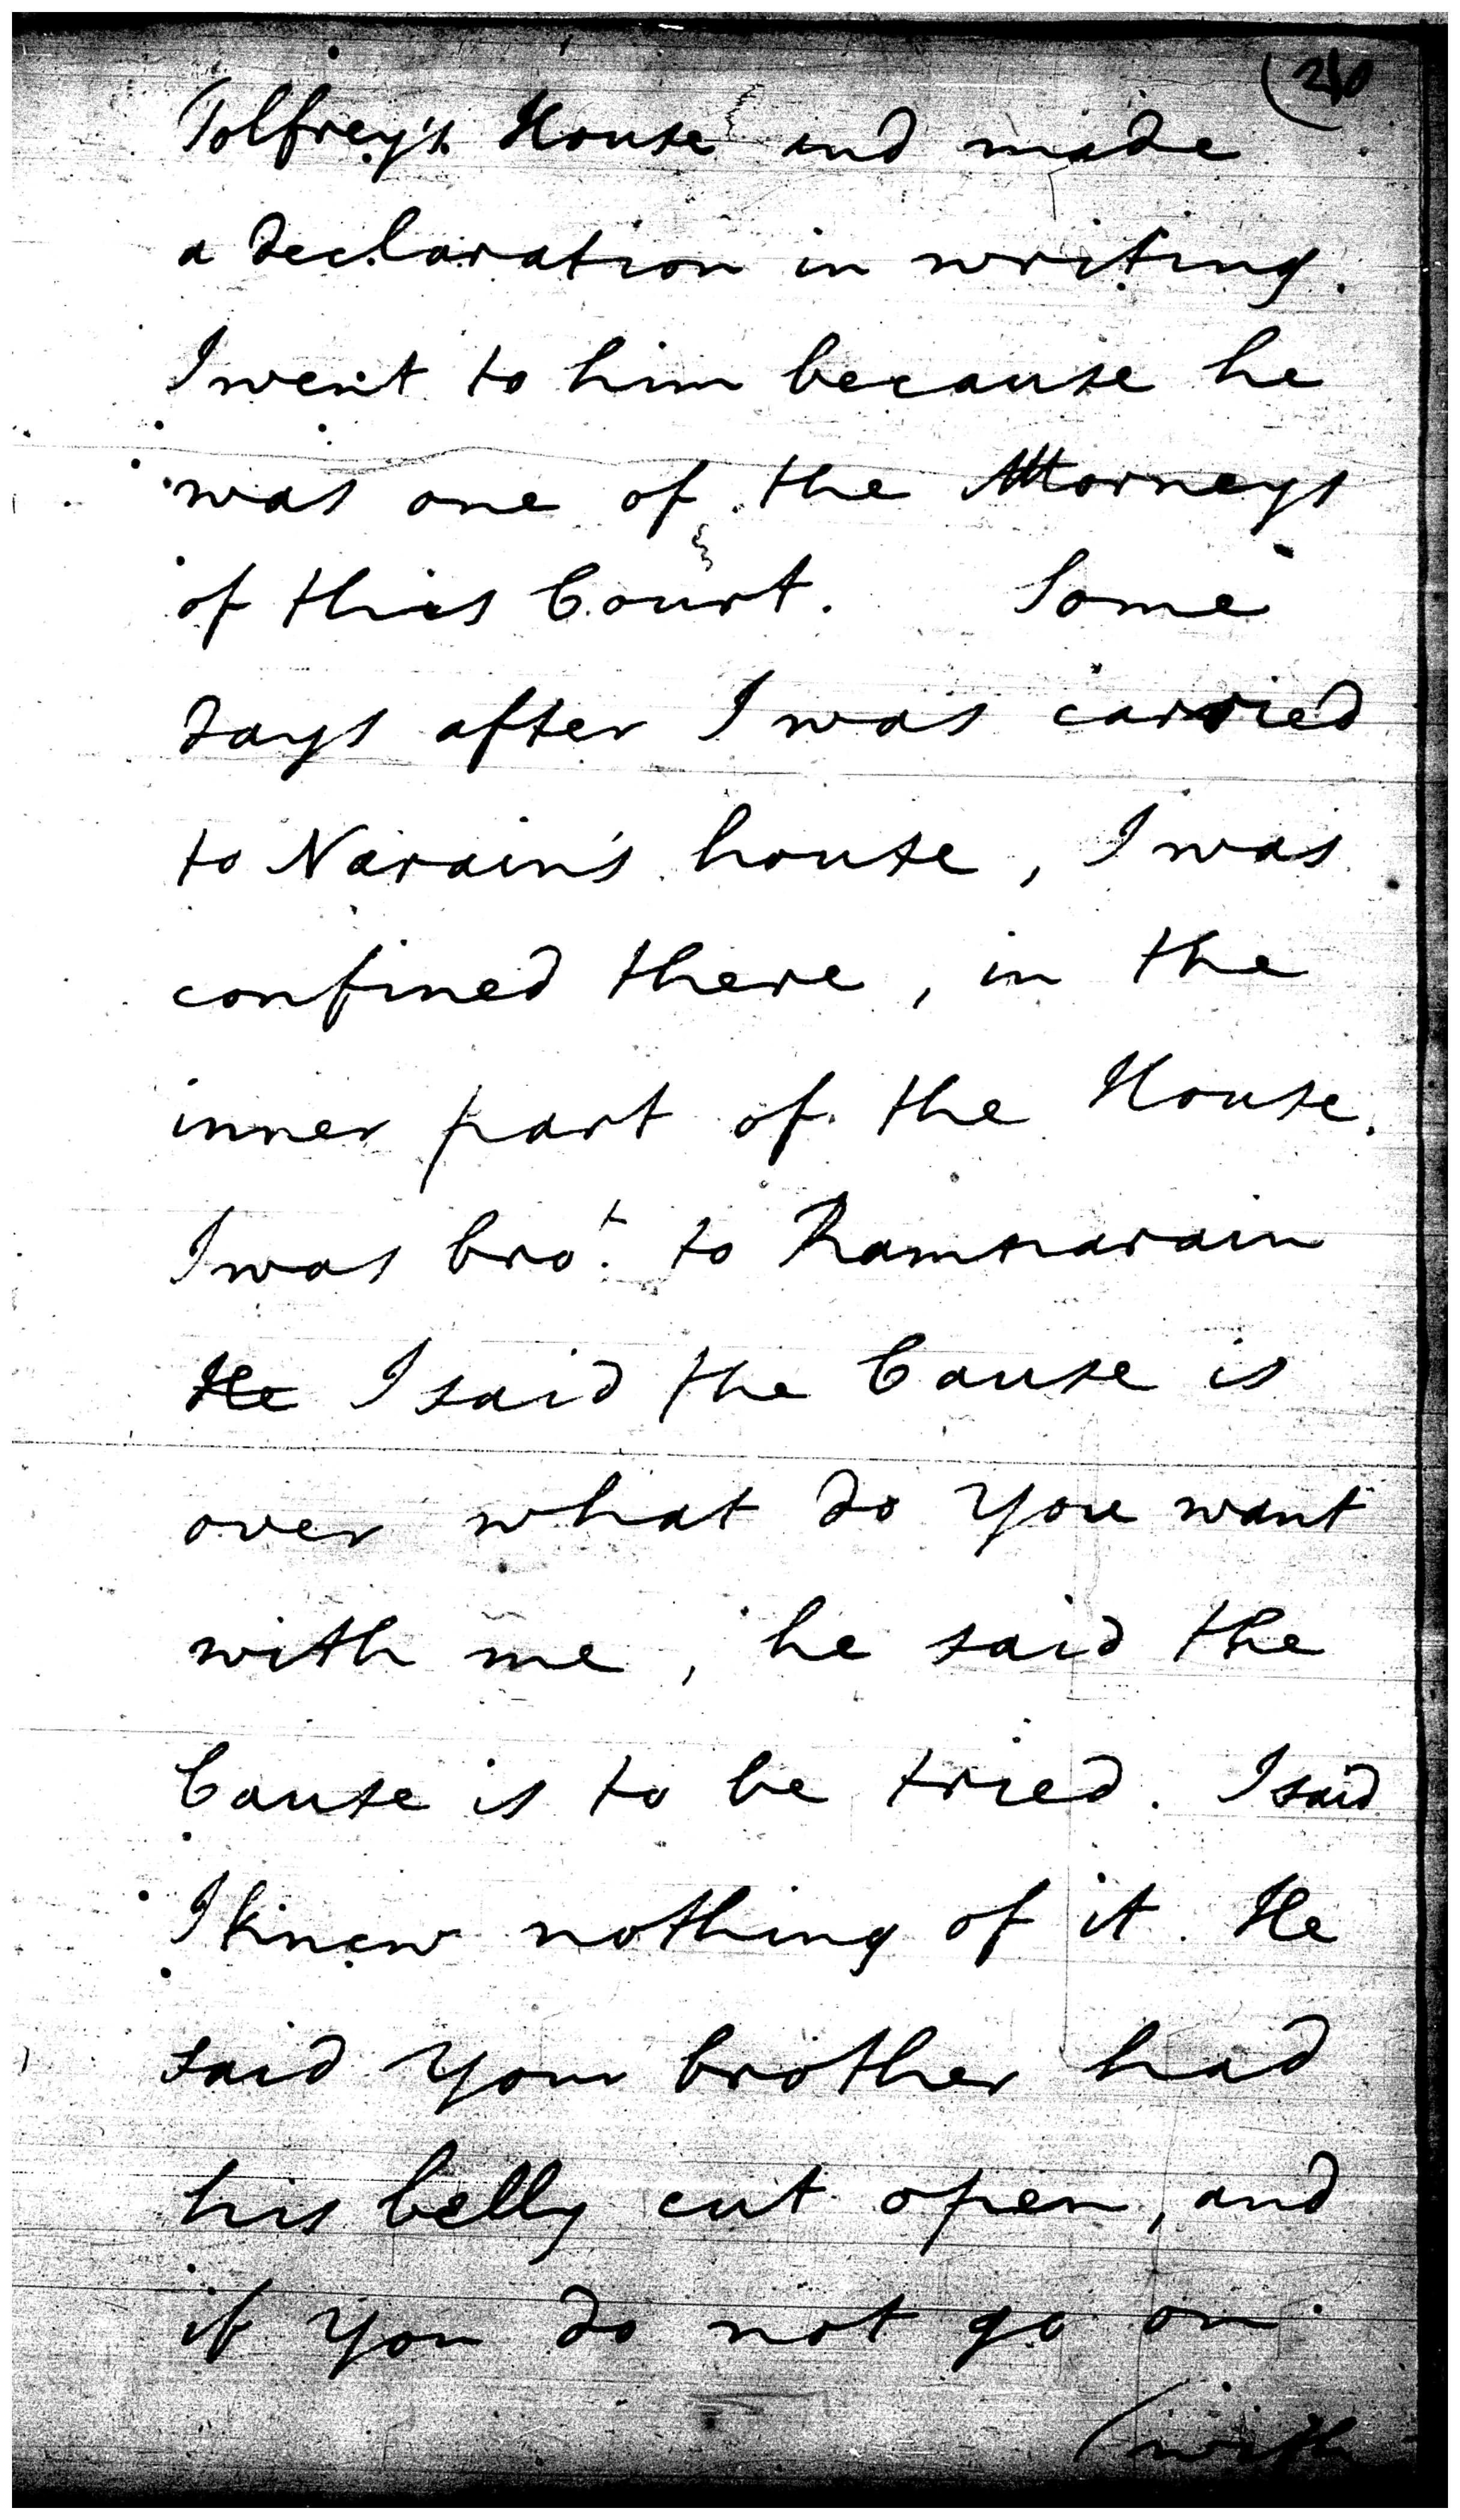 Tolfrey's House and made
a declaration in writing.
I went to him because he
was one of the Attorneys
of this Court. Some
days after I was carried
to Narain's house, I was
confined there, in the
inner part of the House.
I was bro.t to Ramnarain
He I said the Cause is
over what do you want
with me, he said the
Cause is to be tried. I said
I knew nothing of it. He
said your brother had
his belly cut open, and
if you do not go on
(with